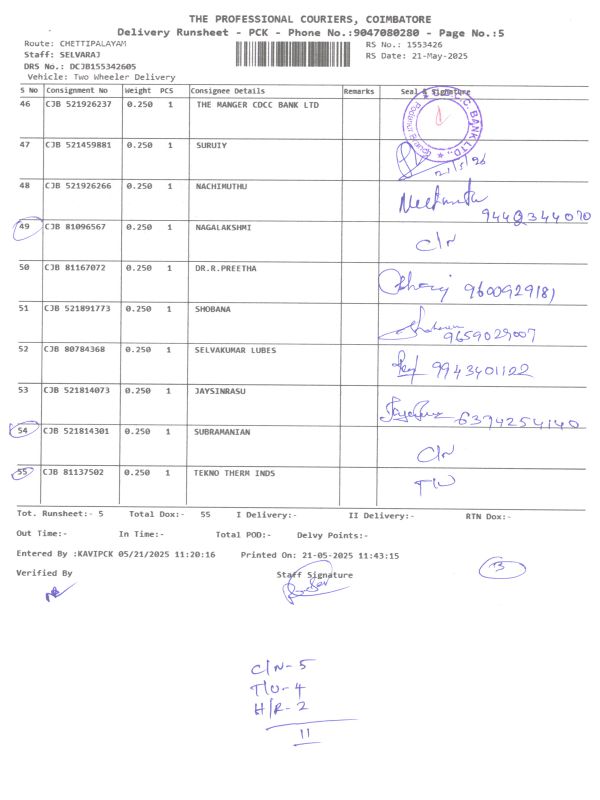 THE PROFESSIONAL COURIERS, COIMBATORE
Delivery Runsheet - PCK - Phone No.:9047080280 - Page No.:5
Route: CHETTIPALAYAM RS No.: 1553426
Staff: SELVARAJ RS Date: 21-May-2025
DRS No.: DCJB155342605
Vehicle: Two Wheeler Delivery
S No Consignment No Weight PCS Consignee Details Remarks Seal & Signature
46 CJB 521926237 0.250 1 THE MANGER CDCC BANK LTD
47 CJB 521459881 0.250 1 SURUIY
48 CJB 521926266 0.250 1 NACHIMUTHU 9442344070
49 CJB 81096567 0.250 1 NAGALAKSHMI C/N
50 CJB 81167072 0.250 1 DR.R.PREETHA 9600929181
51 CJB 521891773 0.250 1 SHOBANA 9659029007
52 CJB 80784368 0.250 1 SELVAKUMAR LUBES 9943401122
53 CJB 521814073 0.250 1 JAYSINRASU 6374254140
54 CJB 521814301 0.250 1 SUBRAMANIAN C/N
55 CJB 81137502 0.250 1 TEKNO THERM INDS
Tot. Runsheet:- 5 Total Dox:- 55 I Delivery:- II Delivery:- RTN Dox:-
Out Time:- In Time:- Total POD:- Delvy Points:-
Entered By :KAVIPCK 05/21/2025 11:20:16 Printed On: 21-05-2025 11:43:15
Verified By Staff Signature
C/N-5
T/U-4
H/R-2
11